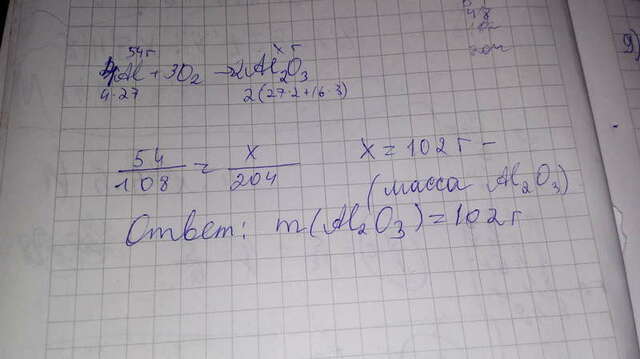 54г    x г
4Al + 3O₂ → 2Al₂O₃
4·27    2(27·2+16·3)
54/108 = x/204    x = 102 г –
(масса Al₂O₃)
Ответ: m(Al₂O₃) = 102 г
9)